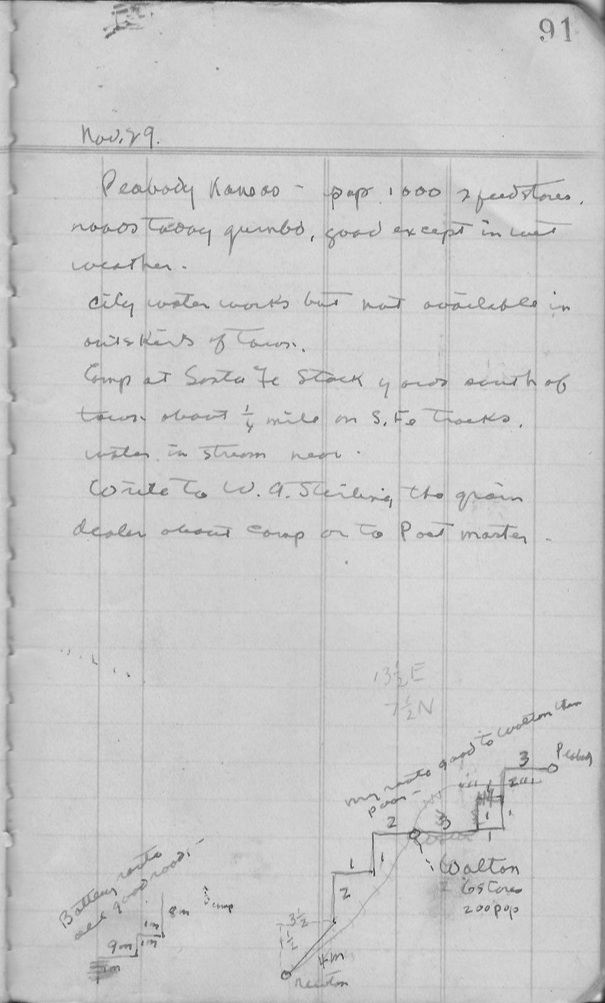 91
Nov. 29.
Peabody Kansas - pop. 1000 2 feed stores,
roads today gumbo, good except in wet
weather.
city water works but not available in
outskirts of town.
Camp at Santa Fe Stock yards south of
town about 1/4 mile on S. Fe Tracks.
water in stream near.
Write to W. A. Sterling the grain
dealer about camp or to Post master -
13 1/2 E
7 1/2 N
my route good to Walton then
poor -
3 Peabody
2
1
1
1
2 3
1
1
2
Walton
2 Gstores
200 pop
3 1/2
1 1/2
4m
Newton
Battery route
good roads -
8m
camp
1m
9m 1m